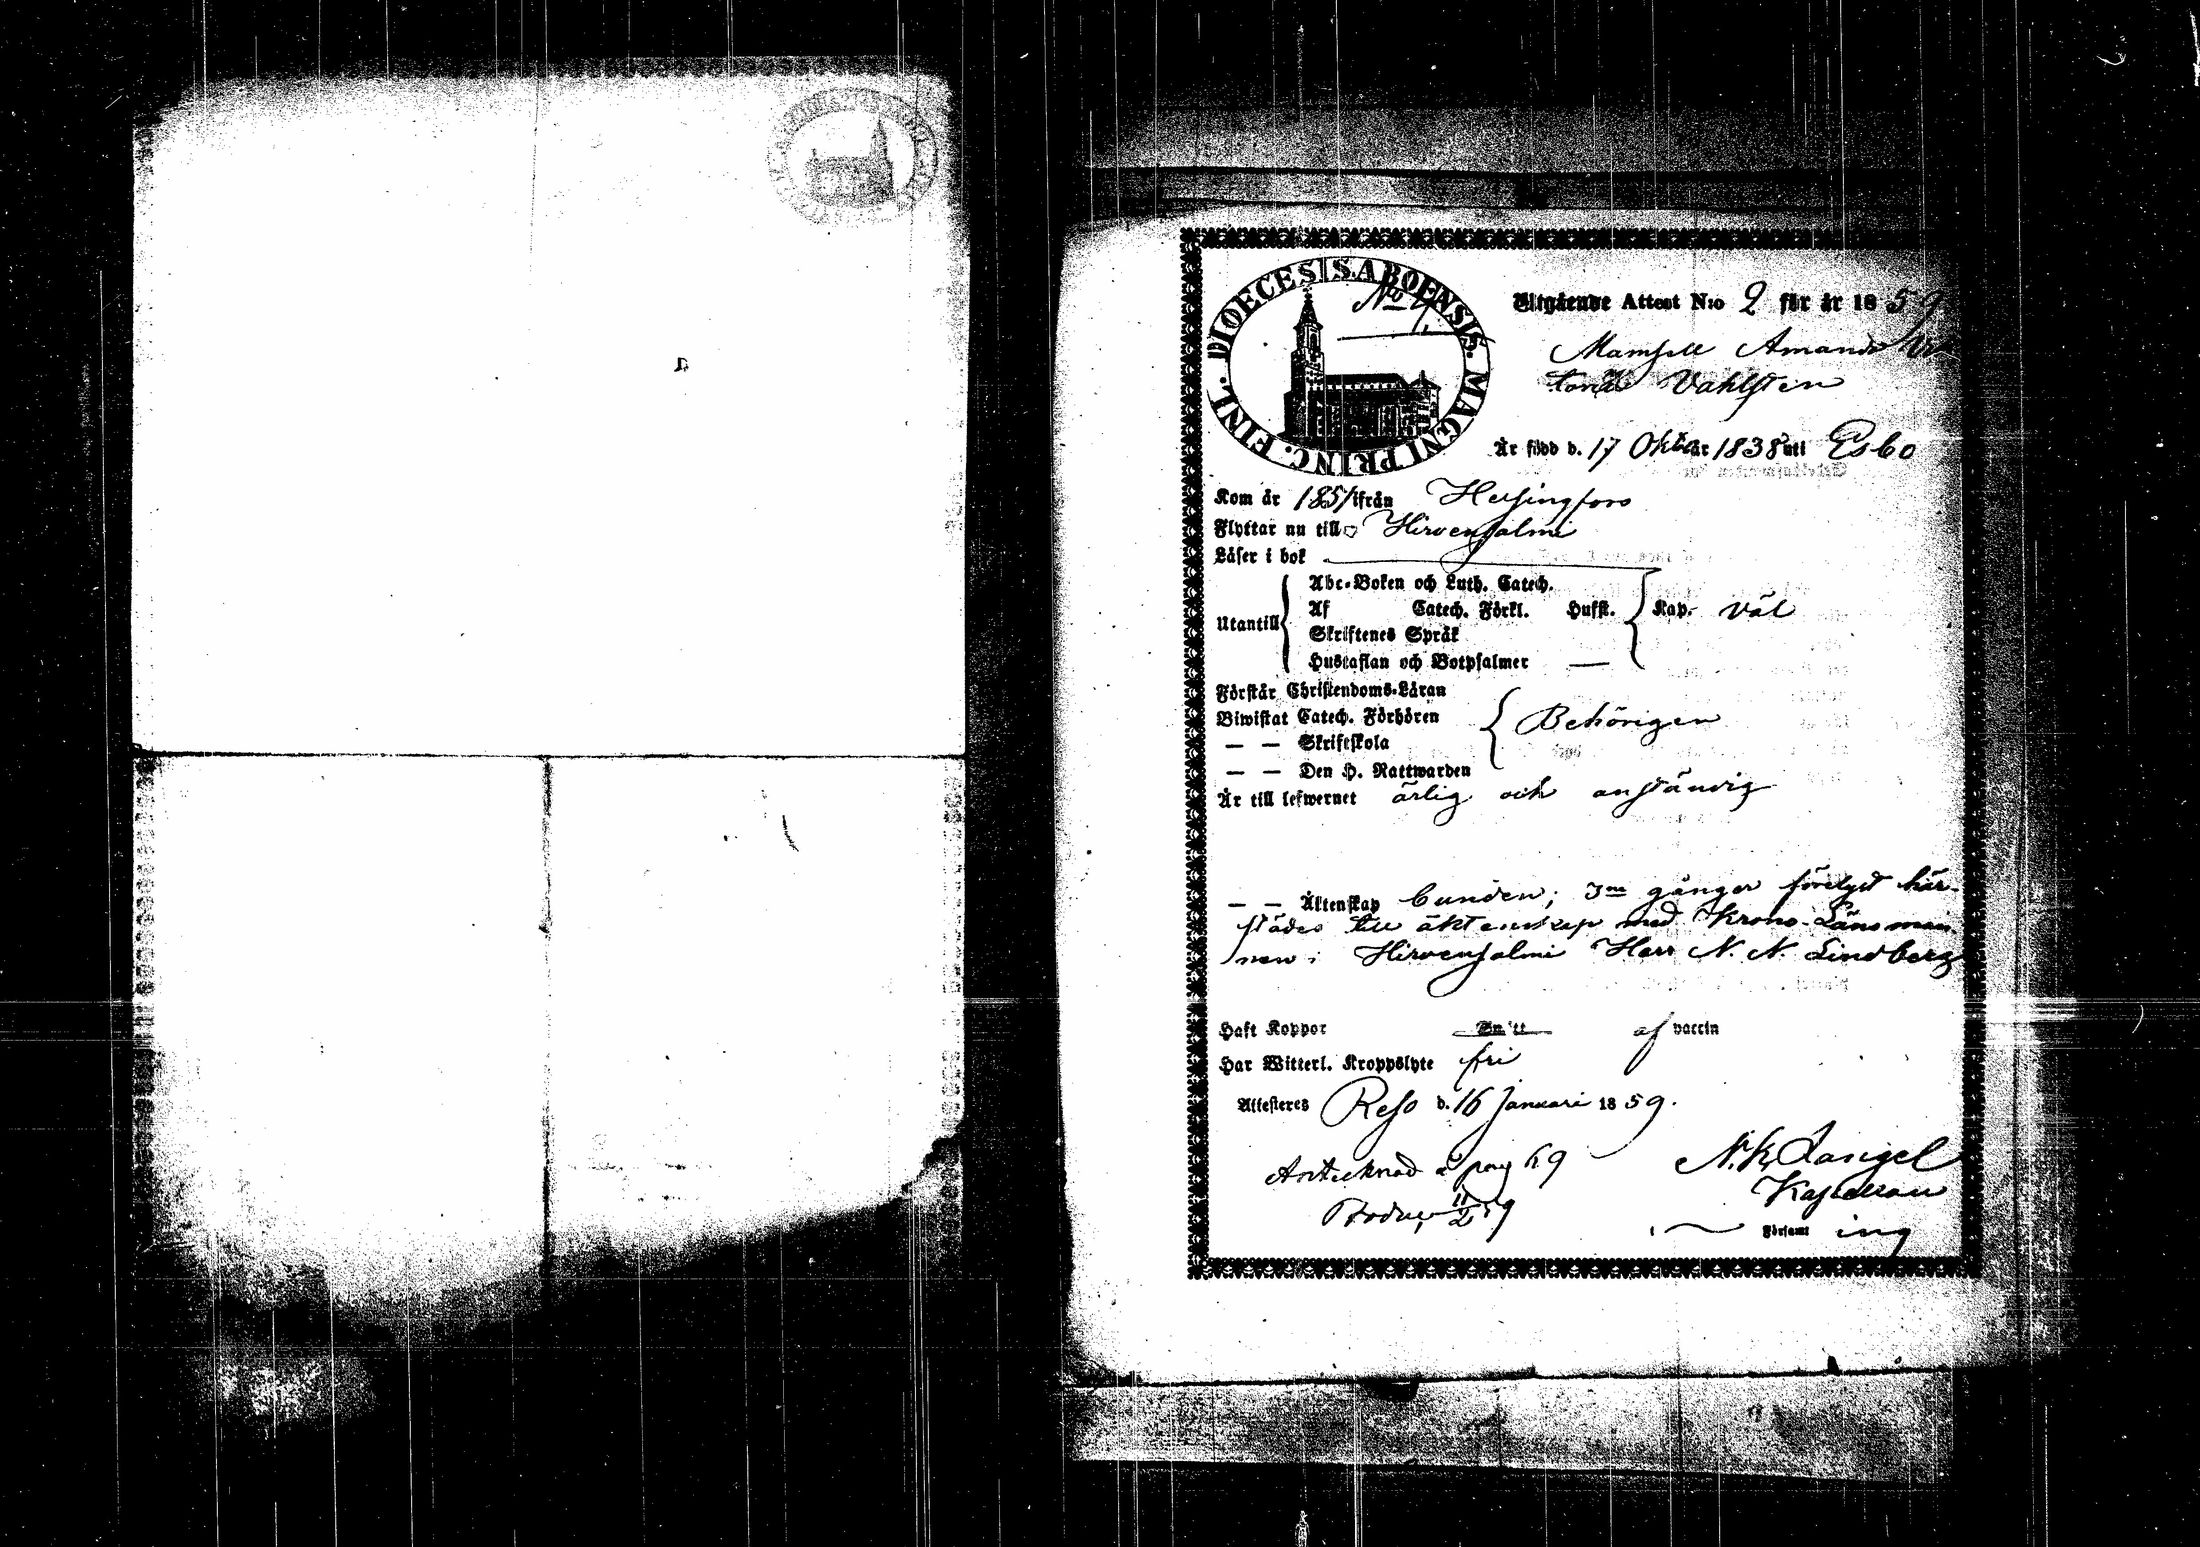 DIOECESIS ABOENSIS. MAGNI PRINC. FINL.
No 4.
Utgående Attest N:o 2 för år 1859
Mamsell Amanda Vic
toria Vahlsten
Är född d. 17 Oktb år 1838 uti Esbo
Kom år 1851 ifrån Helsingfors
Flyttar nu till Hirvensalmi
Läser i bok
Abc-Boken och Luth. Catech.
Utantill Af Catech. Förkl. Hufst. Kap. väl
Skriftenes Språk
Hustaflan och Botpsalmer —
Förstår Christendoms-Läran
Biwistat Catech. Förhören Behörigen
— — Skriftskola
— — Den H. Nattwarden
Är till lefwernet ärlig och anständig
— — Äktenskap bunden; 3ne gånger förelyst här-
städes till äktenskap med Krono-Länsman
nen i Hirvensalmi Herr N. N. Lindberg
Haft Koppor af vaccin
Har Witterl. Kroppslyte fri
Attesteres Reso d. 16 Januari 1859.
Antecknad å pag 69
Produc 11/2 59
Kapellan
Församl ing